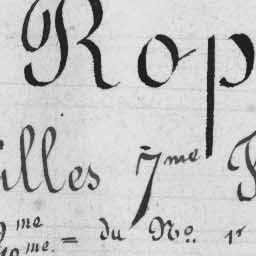 Rop
illes 7me F
me = du No. 1r
10me.